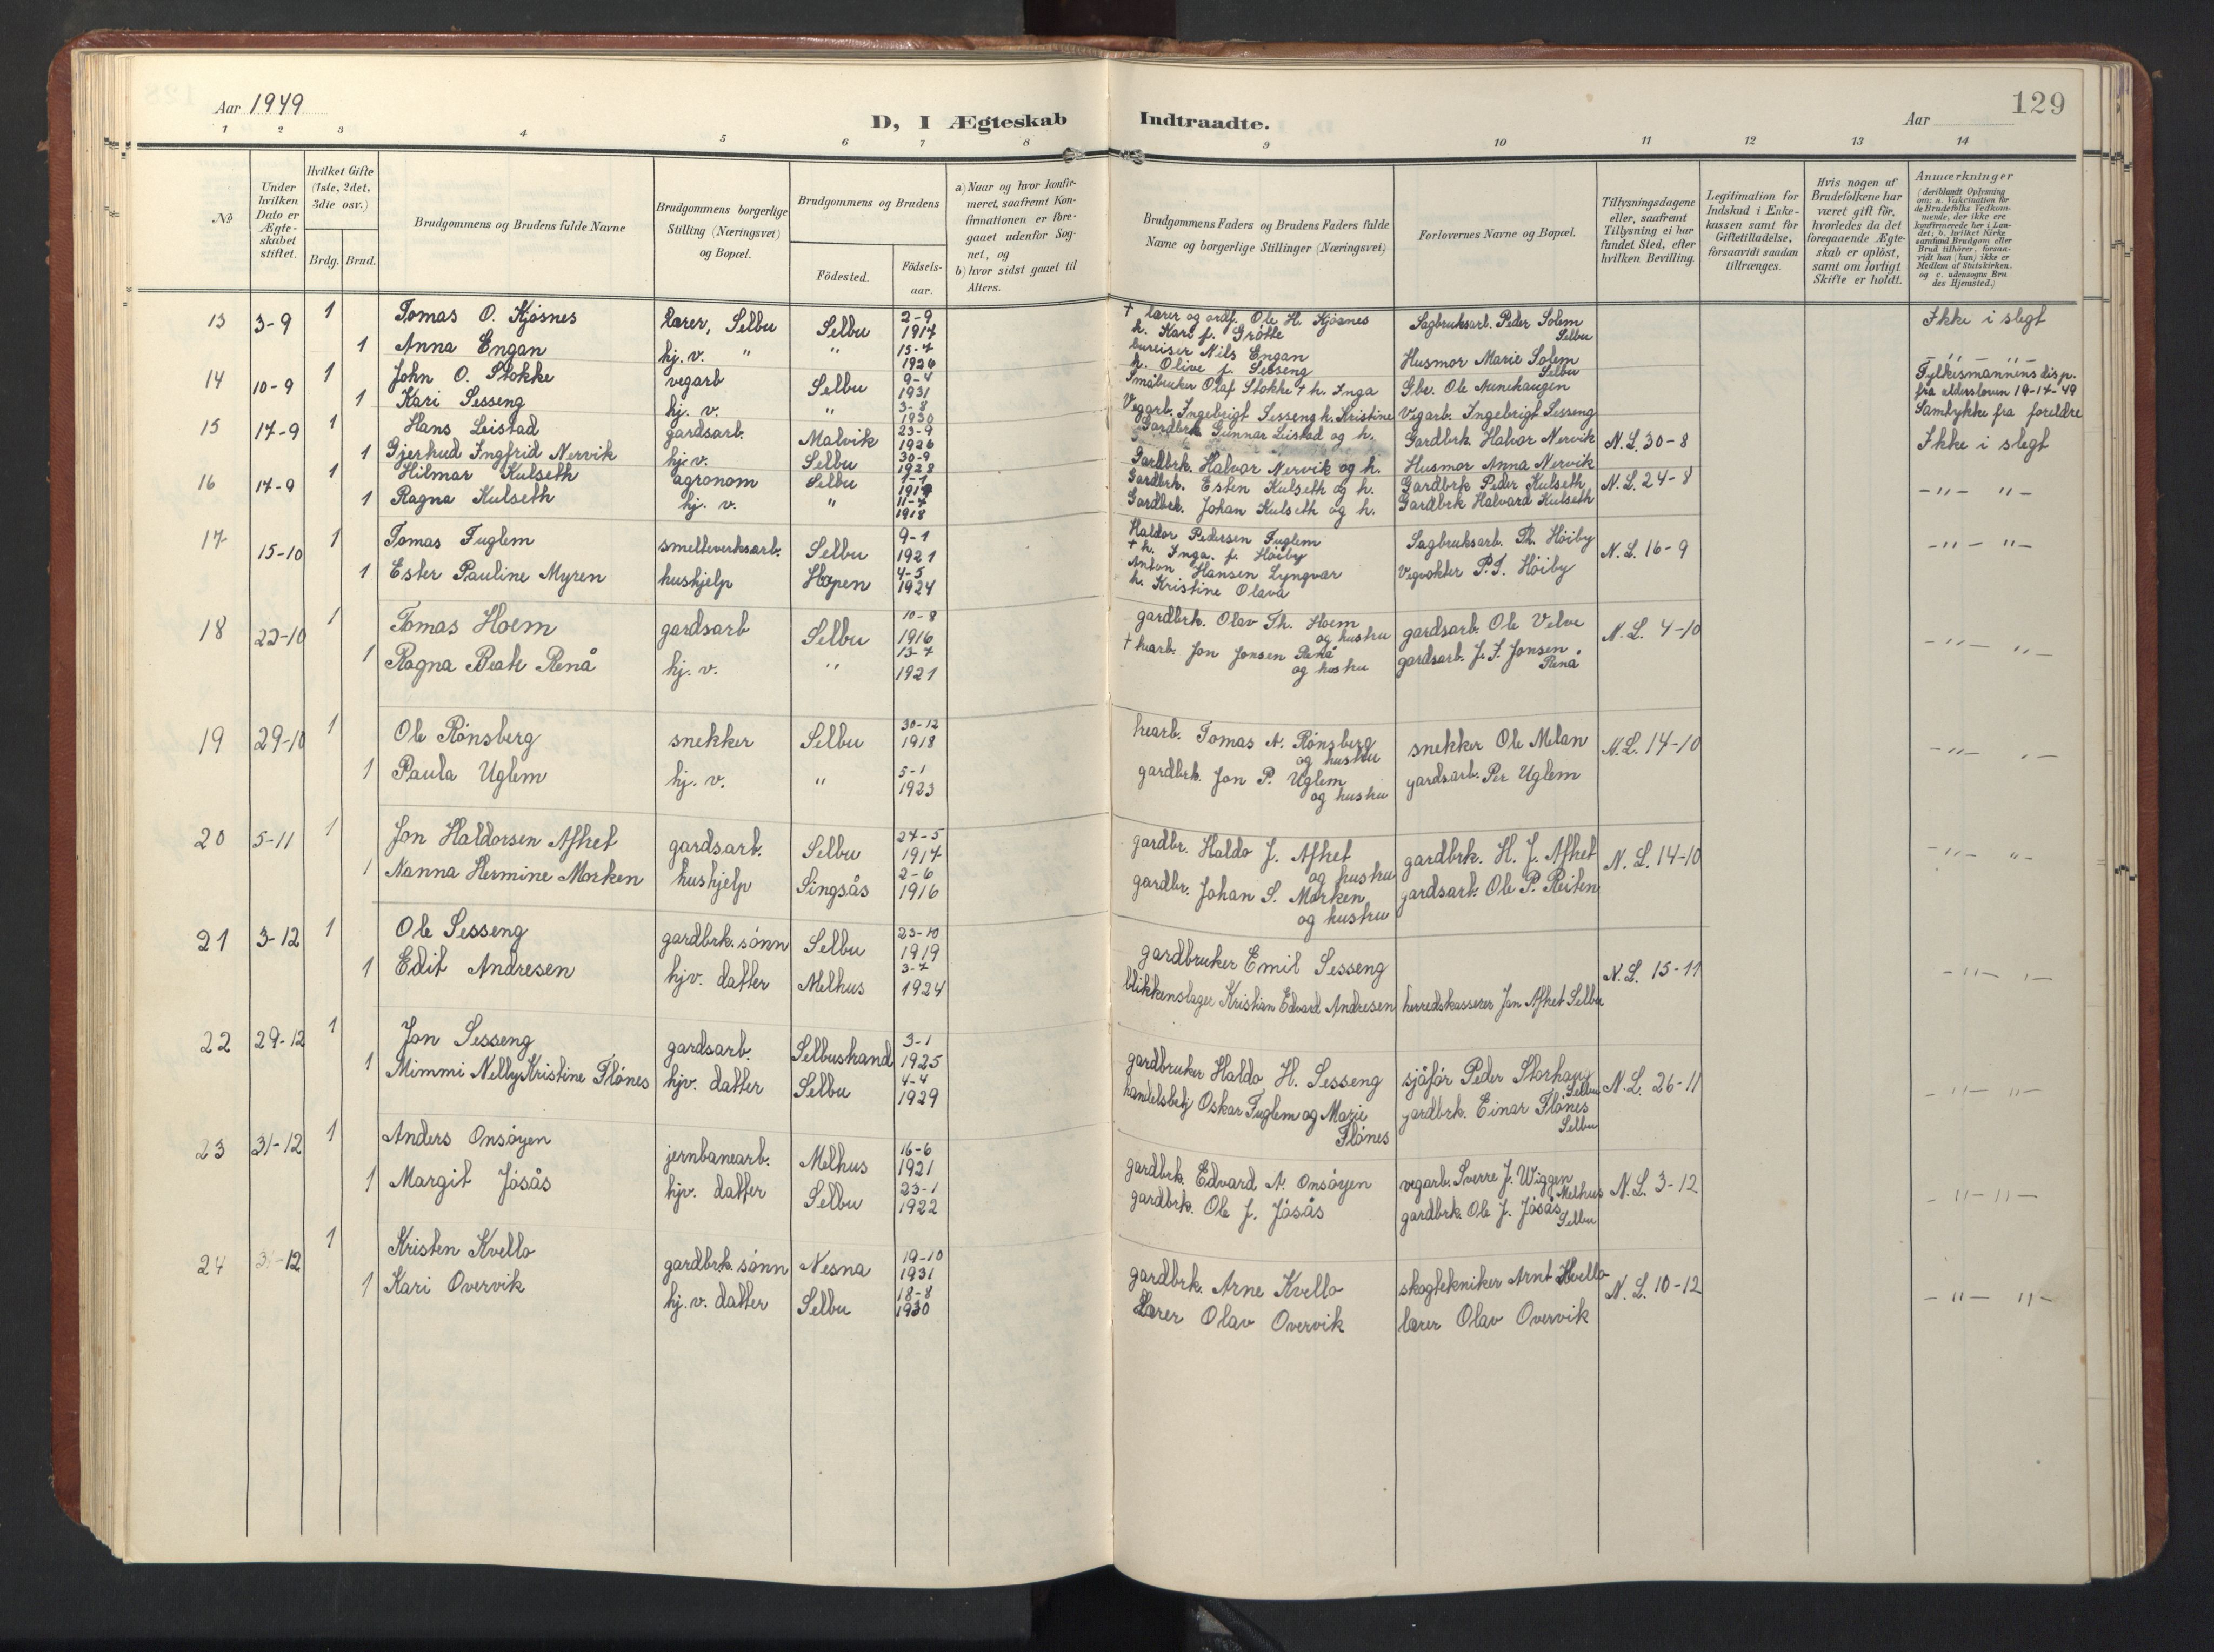 Aar 1949
D, I Ægteskab Indtraadte.
Aar
129
1 2 3 4 5 6 7 8 9 10 11 12 13 14
No
Under hvilken Dato er Ægteskabet stiftet.
Hvilket Gifte (1ste, 2det, 3die osv.)
Brdg. Brud.
Brudgommens og Brudens fulde Navne
Brudgommens borgerlige Stilling (Næringsvei) og Bopæl.
Brudgommens og Brudens
Födested.
Födsels-aar.
a) Naar og hvor konfirmeret, saafremt Konfirmationen er foregaaet udenfor Sognet, og
b) hvor sidst gaaet til Alters.
Brudgommens Faders og Brudens Faders fulde Navne og borgerlige Stillinger (Næringsvei)
Forlovernes Navne og Bopæl.
Tillysningsdagene eller, saafremt Tillysning ei har fundet Sted, efter hvilken Bevilling.
Legitimation for Indskud i Enkekassen samt for Giftetilladelse, forsaavidt saadan tiltrænges.
Hvis nogen af Brudefolkene har været gift för, hvorledes da det foregaaende Ægteskab er oplöst, samt om lovligt Skifte er holdt.
Anmærkninger
(deriblandt Oplysning om: a. Vakcination for de Brudefolks Vedkommende, der ikke ere konfirmerede her i Landet; b. hvilket Kirkesamfund Brudgom eller Brud tilhörer, forsaavidt han (hun) ikke er Medlem af Statskirken, og c. udensogns Brudes Hjemsted.)
13 3-9 1 Tomas O. Kjøsnes lærer, Selbu Selbu 2-9 1917 † lærer og ordf. Ole H. Kjøsnes h. Kari f. Grøtte Sagbruksarb. Peder Solem Selbu Ikke i slegt
1 Anna Engan hj. v. " " 15-7 1926 bureiser Nils Engan h. Olive f. Sesseng Husmor Marie Solem Selbu -"- -"-
14 10-9 1 John O. Stokke vegarb Selbu 9-4 1931 Småbruker Olaf Stokke † h. Inga Gbr. Ole Aunehaugen Fylkesmannens disp. fra aldersloven 19-17-49
1 Kari Sesseng hj. v. " 3-8 1930 Vegarb. Ingebrigt Sesseng h. Kristine Vegarb. Ingebrigt Sesseng Samtykke fra foreldre
15 17-9 1 Hans Leistad gardsarb. Malvik 23-9 1926 Gardbrk Gunnar Leistad og h. Gardbrk. Halvor Nervik N.L. 30-8 Ikke i slegt
1 Gjertrud Ingfrid Nervik hj. v. Selbu 30-9 1928 Gardbrk. Halvor Nervik og h. Husmor Anna Nervik
16 17-9 1 Hilmar Kulseth agronom Selbu 1-1 1917 Gardbrk. Esten Kulseth og h. Gardbrk Peder Kulseth N.L. 24-8 -"- "-
1 Ragna Kulseth hj. v. " 11-7 1918 Gardbrk. Johan Kulseth og h. Gardbrk Halvard Kulseth
17 15-10 1 Tomas Fuglem smelteverksarb. Selbu 9-1 1921 Haldor Pedersen Fuglem † h. Inga. f. Høiby Sagbruksarb. Th. Höiby N.L. 16-9 -"- "-
1 Ester Pauline Myren hushjelp Hopen 4-5 1924 Anton Hansen Lyngvær h. Kristine Olava Vegvokter P.T. Höiby
18 22-10 1 Tomas Hoem gardsarb Selbu 10-8 1916 gardbrk. Olav Th. Hoem og hustru gardsarb. Ole Velve N.L. 4-10 -"- "-
1 Ragna Beate Renå hj. v. " 13-7 1921 † hearb. Jon Jonsen Renå og hustru gardsarb. J. J. Jonsen Renå
19 29-10 1 Ole Rönsberg snekker Selbu 30-12 1918 hearb. Tomas N. Rönsberg og hustru snekker Ole Melan N.L. 14-10 -"- "-
1 Paula Uglem hj. v. " 5-1 1923 gardbrk. Jon P. Uglem og hustru gardsarb. Per Uglem
20 5-11 1 Jon Haldorsen Aftret gardsarb. Selbu 24-5 1917 gardbr. Haldo J. Aftret og hustru gardbrk. H. J. Aftret N.L. 14-10 -"- "-
1 Nanna Hermine Morken hushjelp Singsås 2-6 1916 gardbr. Johan S. Morken og hustru gardsarb. Ole P. Reiten
21 3-12 1 Ole Sesseng gardbrk. sönn Selbu 23-10 1919 gardbruker Emil Sesseng N.L. 15-11 -"- "-
1 Edit Andresen hjv. datter Melhus 3-7 1924 blikkenslager Kristian Edvard Andresen herredskasserer Jon Aftret Selbu
22 29-12 1 Jon Sesseng gardsarb. Selbustrand 3-1 1925 gardbruker Haldo H. Sesseng sjåför Peder Storhaug Selbu N.L. 26-11 -"- "-
1 Mimmi Nelly Kristine Flönes hjv. datter Selbu 4-4 1929 handelsbetj Oskar Fuglem og Marie Flönes gardbrk. Einar Flönes Selbu
23 31-12 1 Anders Onsöyen jernbanearb. Melhus 16-6 1921 gardbrk. Edvard A. Onsöyen vegarb. Sverre J. Wiggen Melhus N.L. 3-12 -"-"-
1 Margit Jösås hjv. datter Selbu 23-1 1922 gardbrk. Ole J. Jösås gardbrk. Ole J. Jösås Selbu
24 31-12 1 Kristen Kvello gardbrk. sönn Nesna 19-10 1931 gardbrk. Arne Kvello skogtekniker Arnt Kvello N.L. 10-12 -"- "-
1 Kari Overvik hj. v. datter Selbu 18-8 1930 Lærer Olav Overvik lærer Olav Overvik